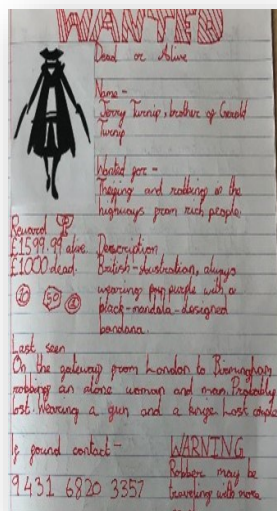 WANTED
Dead or Alive
Name -
Terry Turnip, brother of Gerald
Turnip
Wanted for -
Theifing and robbing on the
highways from rich people.
Reward
£1599.99 alive
£1000 dead.
20 50
Description
British - , always
wearing purple with a
black-mandala-designed
bandana.
Last seen
On the gateway from London to Birmingham
robbing an alone woman and man. Probably
lost. Wearing a gun and a knife. Lost
If found contact -
9431 6820 3357
WARNING
Robber may be
traveling with more